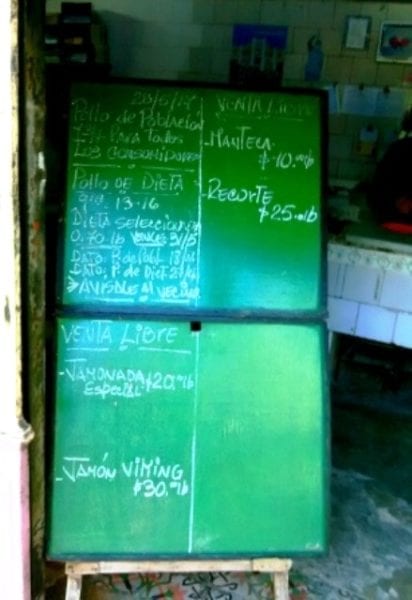 Pollo de Población
Para Todos
Los Consumidores
Pollo de Dieta
13-16
Dieta
0.70 lb vence 31/5
Dato. P. de Pobl. 18/
Dato. P. de Diet
Avísole al vecino
Venta Libre
- Manteca
$10.00 lb
- Recorte
$25.00 lb
Venta Libre
- Jamonada $20.00 lb
Especial
- Jamón Viking
$30.00 lb